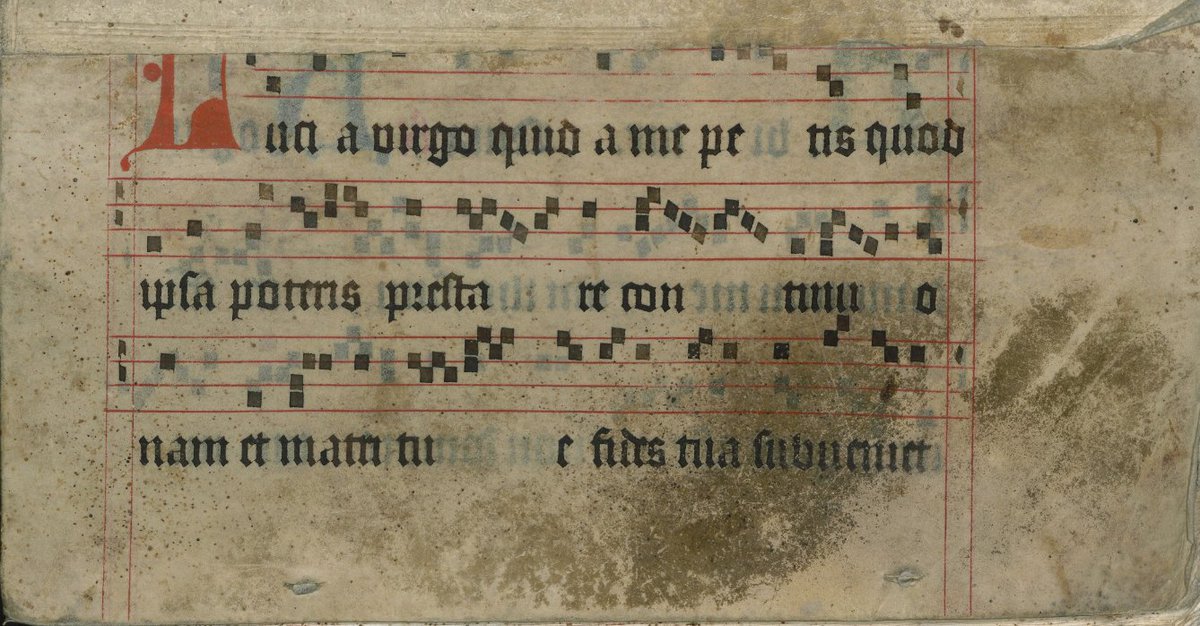 Luci a virgo quid a me pe tis quod
ipsa poteris presta re con tinu o
nam et matri tu e fides tua subveniet